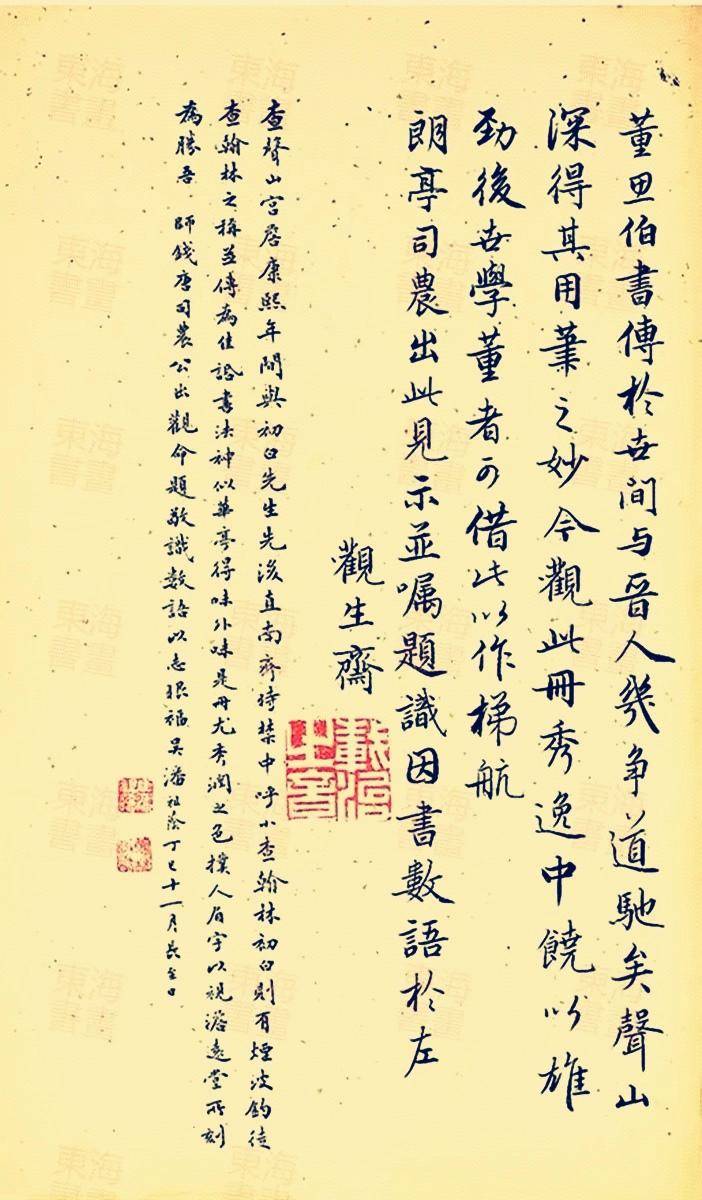 董思伯書傳於世間与晉人幾爭道馳矣聲山
深得其用筆之妙今觀此冊秀逸中饒以雄
勁後世學董者可借此以作梯航
朗亭司農出此見示並嘱題識因書數語於左
觀生齋
查聲山宮詹康熙年間與初白先生先後直南齋時禁中呼小查翰林初白則有煙波釣徒
查翰林之稱並傳為佳話書法神似華亭得味外味是冊尤秀潤之色撲人眉宇以視澹遠堂所刻
為勝吾 師錢唐司農公出觀命題敬識數語以志眼福吳潘祖蔭丁巳十一月長至日
東海書畫